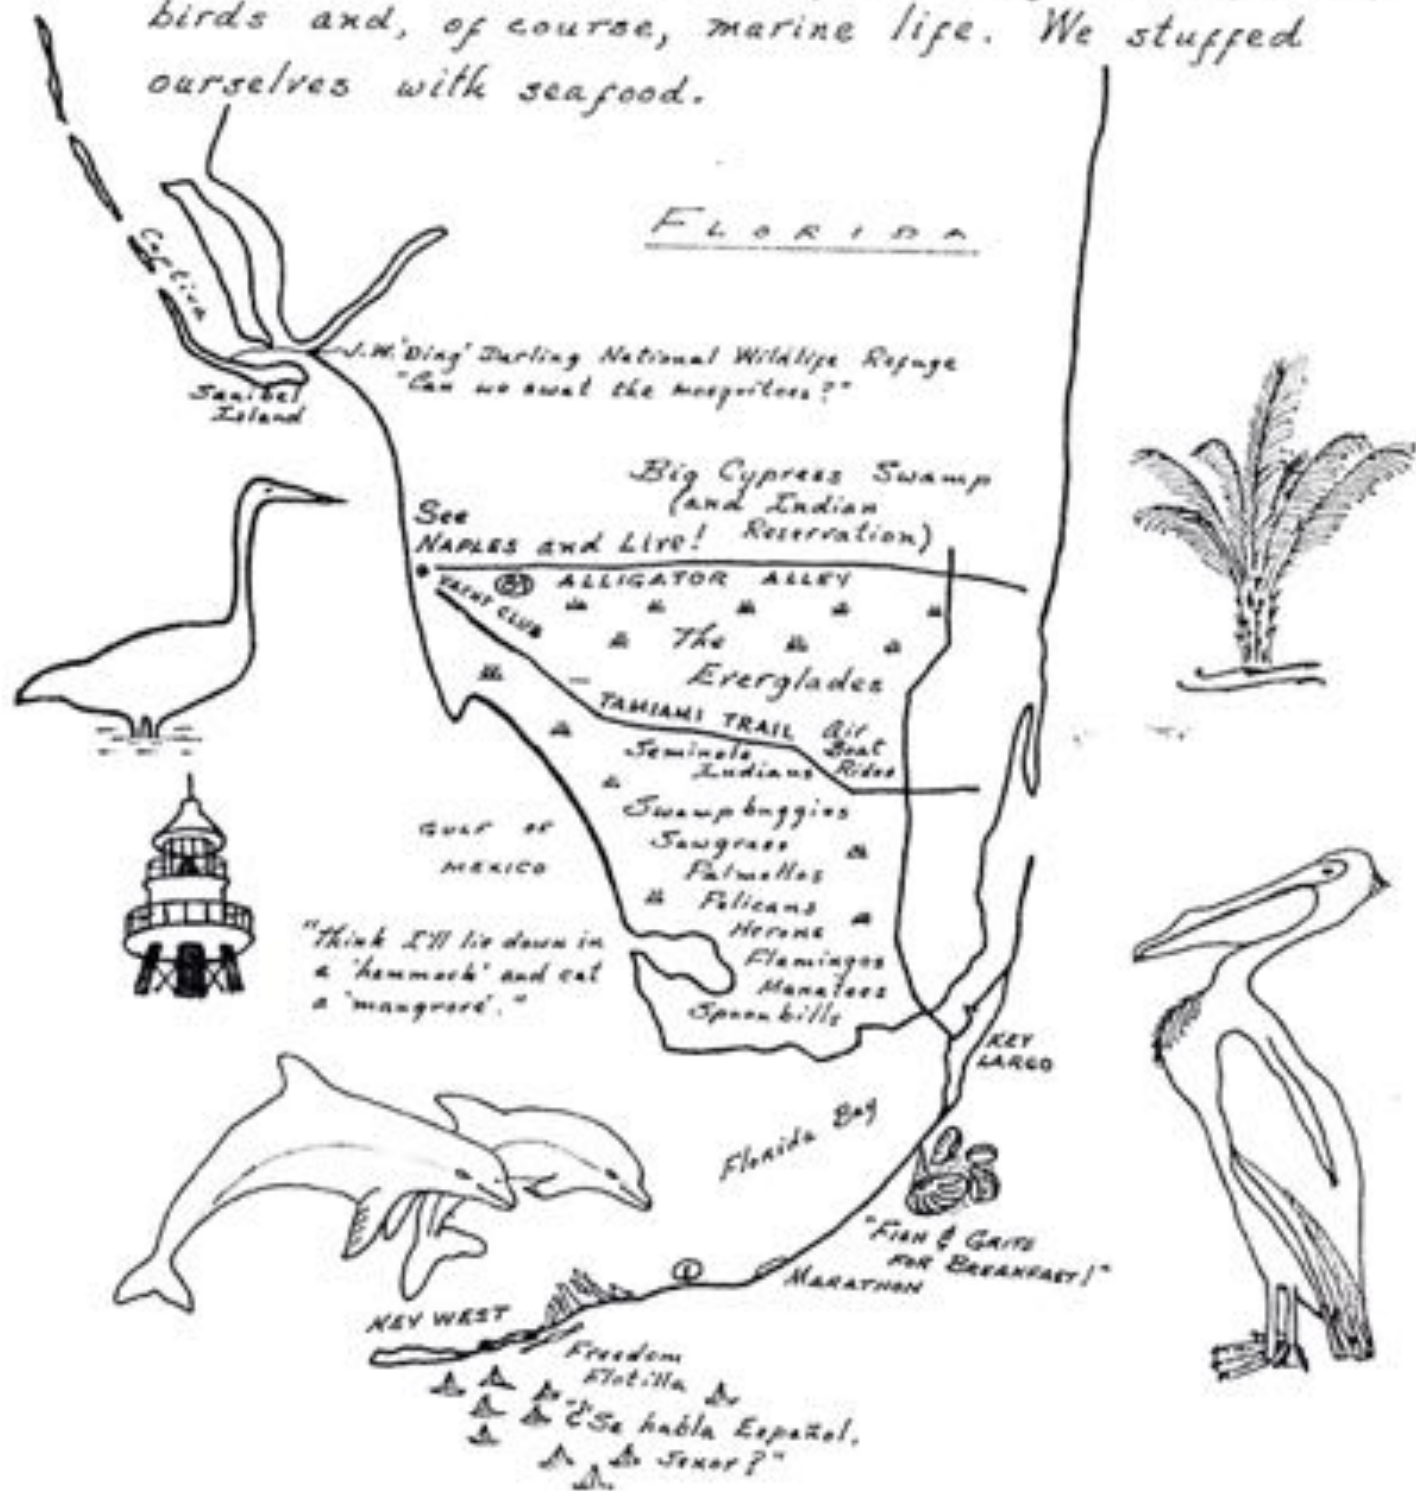 birds and, of course, marine life. We stuffed
ourselves with seafood.
FLORIDA
Captiva
J.N. 'Ding' Darling National Wildlife Refuge
"Can we swat the mosquitoes?"
Sanibel
Island
Big Cypress Swamp
(and Indian
Reservation)
See
NAPLES and Live!
ALLIGATOR ALLEY
YACHT CLUB
The
Everglades
TAMIAMI TRAIL
Air
Boat
Rides
Seminole
Indians
Swampbuggies
Sawgrass
Palmettos
Pelicans
Herons
Flamingos
Manatees
Spoonbills
GULF OF
MEXICO
"Think I'll lie down in
a 'hammock' and eat
a 'mangrove'."
KEY
LARGO
Florida Bay
"FISH & GRITS
FOR BREAKFAST!"
MARATHON
1
KEY WEST
Freedom
Flotilla
"¿Se habla Español,
Senor?"